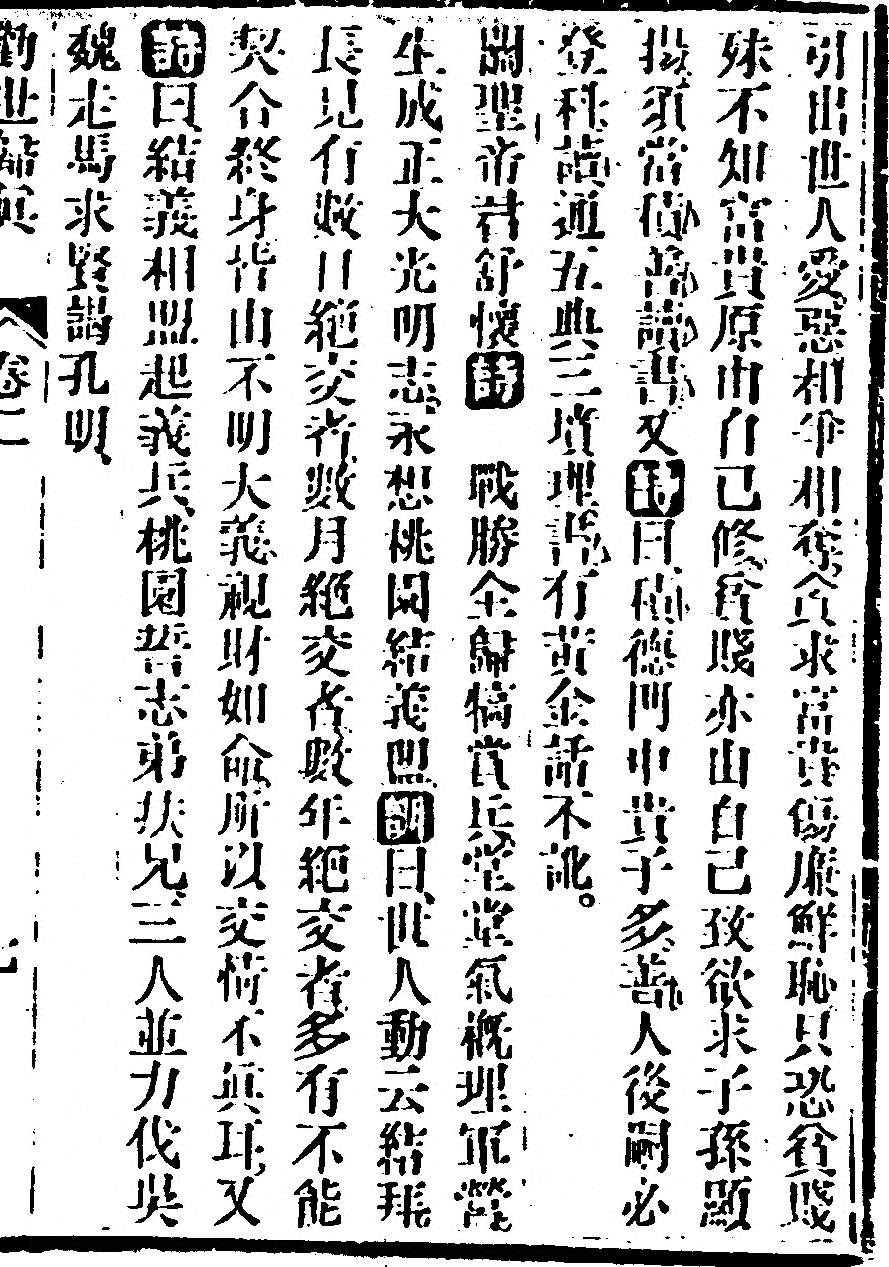 引出世人愛惡相爭相奪貪求富貴傷廉鮮恥只恐貧賤
殊不知富貴原由自己修貧賤亦由自己致欲求子孫顯
揚須當積善讀書又詩曰積德門中貴子多善人後嗣必
登科讀通五典三墳理書有黃金話不訛。
關聖帝君舒懷詩　戰勝全歸犒賞兵堂堂氣概理軍營
生成正大光明志永想桃園結義盟謝曰世人動云結拜
長見有數日絕交者數月絕交者數年絕交者多有不能
契合終身皆由不明大義視財如命所以交情不眞耳又
詩曰結義相盟起義兵桃園誓志弟扶兄三人並力伐吳
魏走馬求賢謁孔明
勸世歸眞　卷二